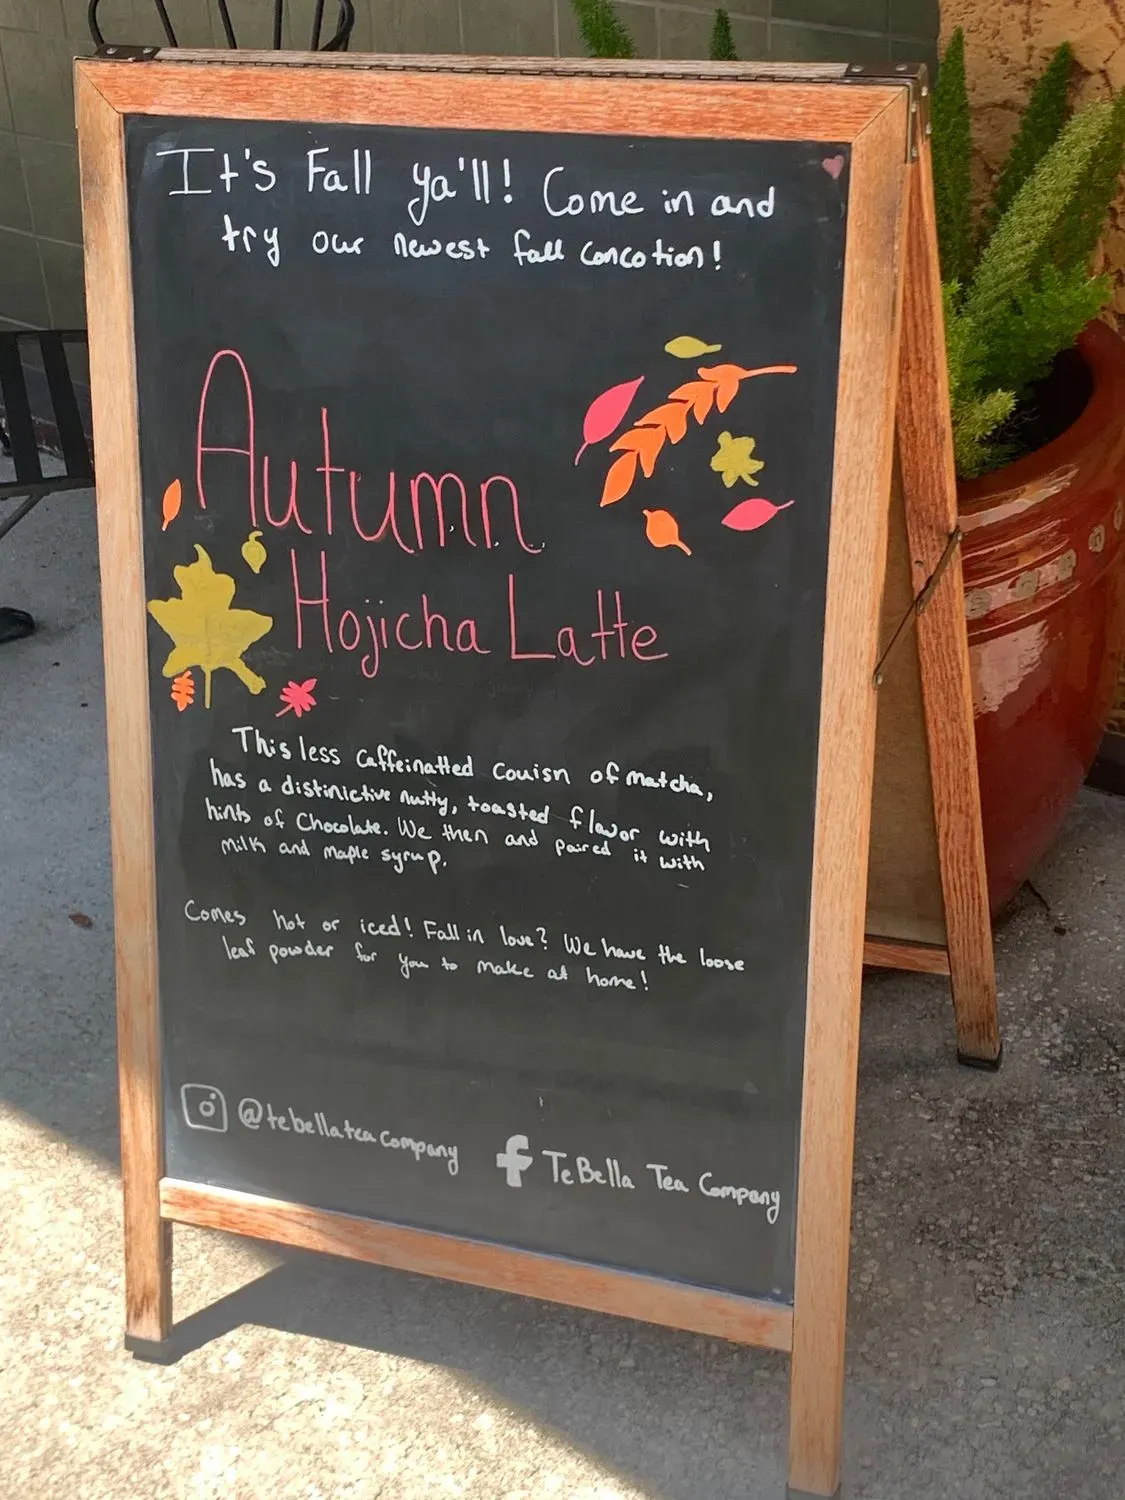 It's Fall ya'll! Come in and
try our newest fall concotion!
Autumn
Hojicha Latte
This less caffeinatted couisn of matcha,
has a distinictive nutty, toasted flavor with
hints of Chocolate. We then and paired it with
milk and maple syrup.
Comes hot or iced! Fall in love? We have the loose
leaf powder for you to make at home!
@tebellateacompany
TeBella Tea Company